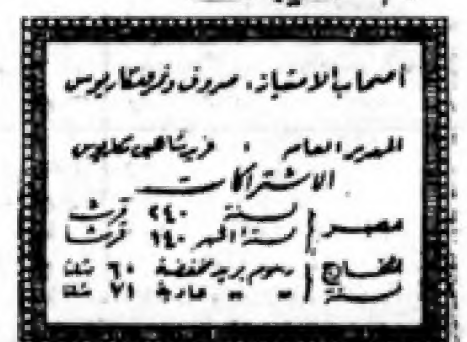 أصحاب الامتياز: صروف وفريد مكاريوس
المدير العام : فريد شاهين مكاريوس
الاشتراكات
مصر لسنة ٢٤٠ قرشا
لستة أشهر ١٤٠ قرشا
الخارج رسوم بريد مخفضة ٦٠ شلنا
لسنة " " عادية ٧١ شلنا